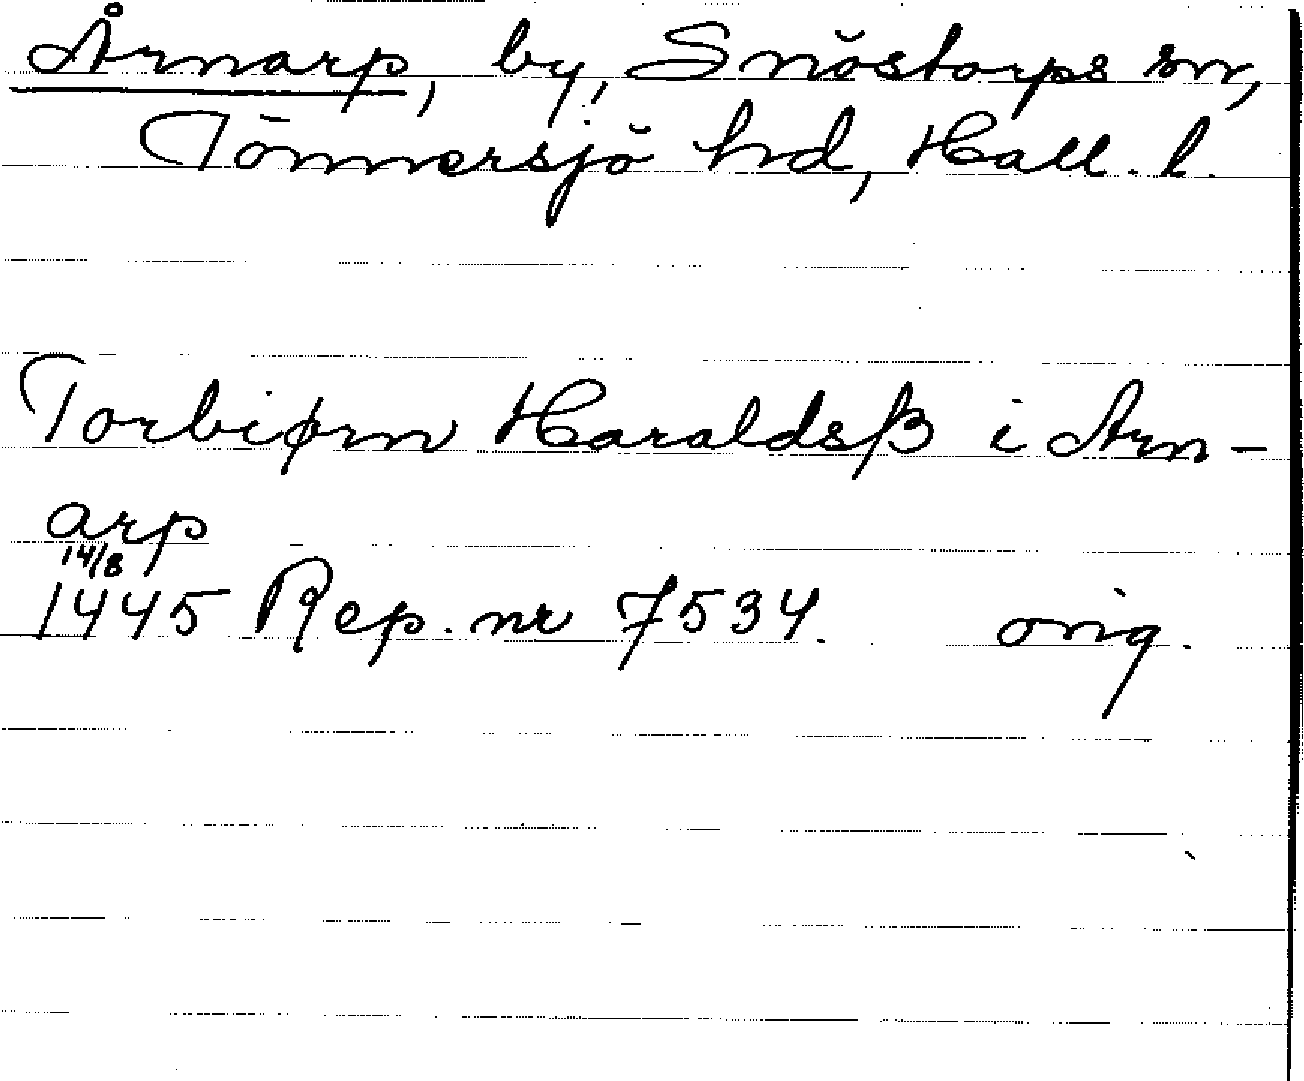 Årnarp, by, Snöstorps sn,
Tönnersjö hd, Hall. l.
Torbiørn Haraldsß i Arn-
arp
14/8
1445 Rep. nr 7534. orig.